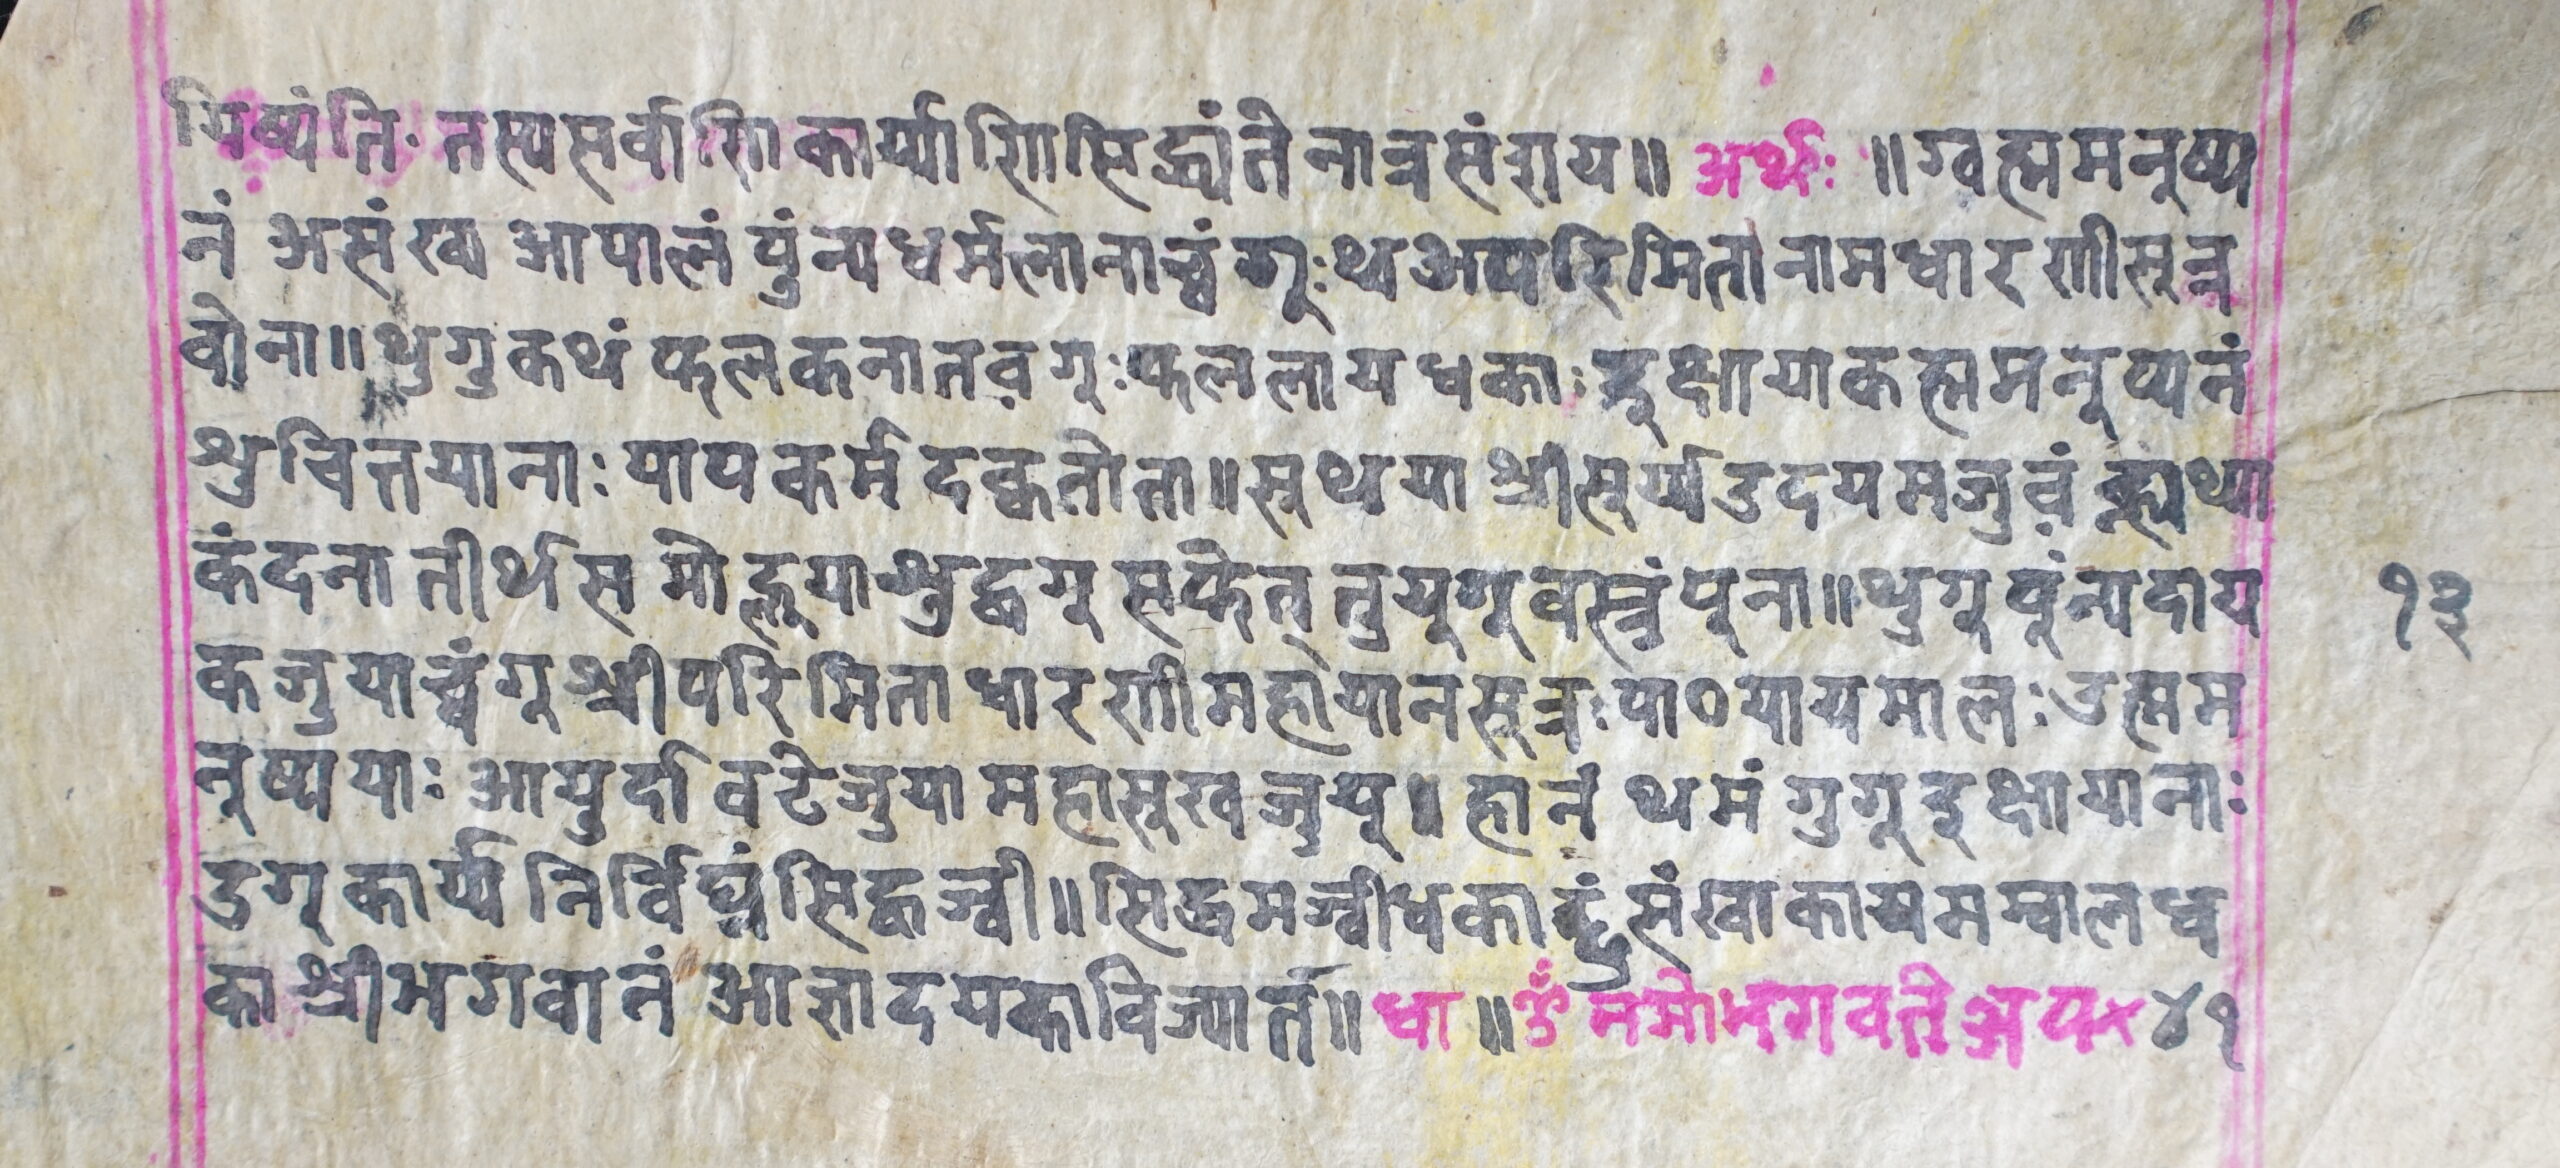 यिष्यंति· तस्य सर्वाणि कार्य्याणि सिद्ध्यंते नात्र संशय॥ अर्थः ॥ ग्वह्म मनुष्य
नं असंख्य आपालं पुंन्य धर्मलानाच्वंगूः थ्व अपरिमिता नाम धारणी सूत्र
वोना॥ थुगु कथं फल कनातव गूः फललाय धकाः इक्षायाक ह्म मनुष्यनं
श्रुचित्तयानाः पापकर्म दक्व तोता॥ सूथया श्री सूर्य्य उदय मजुवं ह्लाथ्या
कंदना तीर्थस मोह्लुया श्रुद्धगू सफेत् तुयूगू वस्त्रं पूना॥ थुगू पूंन्यदाय
कजुयाच्वंगू श्री परिमिता धारणी महायान सूत्रः पाठयायमालः उह्म म
नूष्ययाः आयुर्दा वटे जुया महासूख जुयू॥ हानं थमं गुगू इक्षायानाः
उगू कार्य्य निर्विघ्नं सिद्ध ज्वी॥ सिद्ध मज्वी धका संखा कायमम्वाल ध्व
का श्री भगवानं आज्ञा दयका विज्यार्त॥ धा ॥ ॐ नमो भगवते अप× ४१
१३